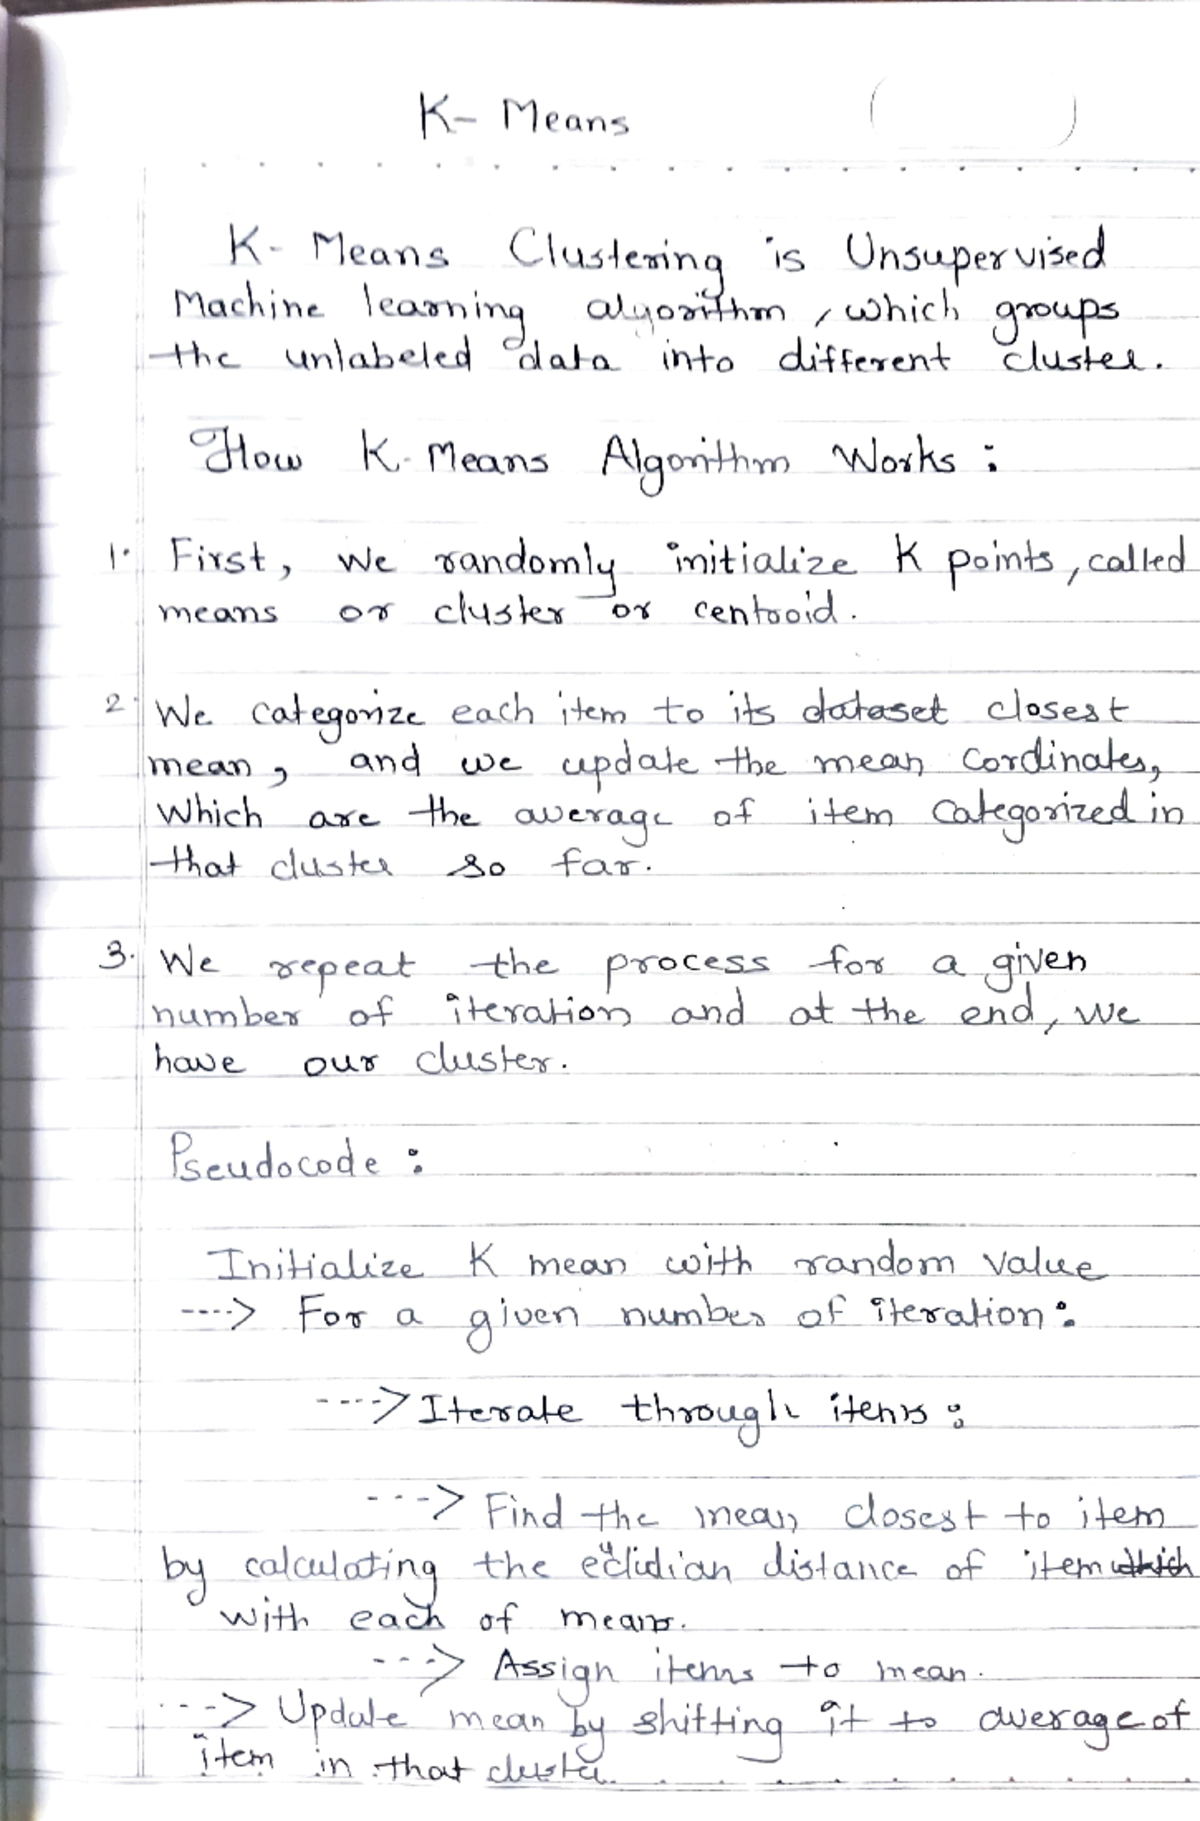 K- Means
K- Means Clustering is Unsupervised
Machine learning algorithm, which groups
the unlabeled data into different cluster.
How K-Means Algorithm Works :
1. First, We randomly initialize K points, called
means or cluster or centroid.
2. We categorize each item to its dataset closest
mean, and we update the mean cordinates,
Which are the average of item categorized in
that cluster so far.
3. We repeat the process for a given
number of iteration and at the end, we
have our cluster.
Pseudocode :
Initialize K mean with random value
----> For a given number of iteration :
----> Iterate through items :
----> Find the mean closest to item
by calculating the euclidian distance of item which
with each of means.
----> Assign items to mean.
----> Update mean by shifting it to average of
item in that cluster.